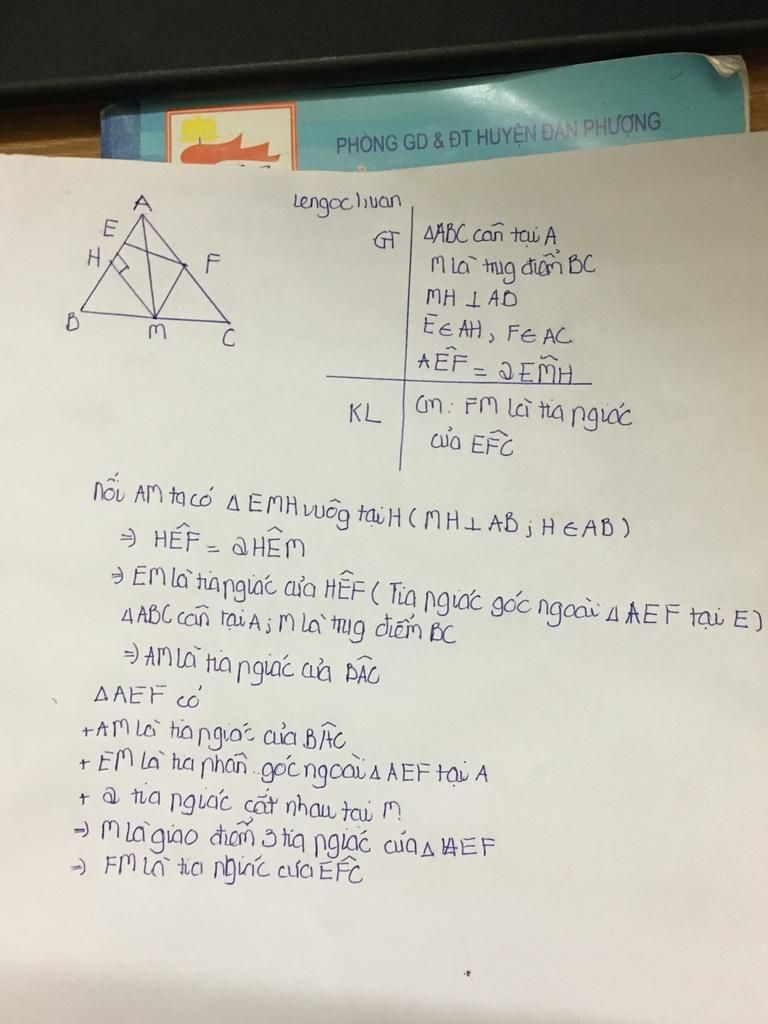 PHÒNG GD & ĐT HUYỆN ĐAN PHƯỢNG
Lengocliuan
A
E
H
F
B
M
C
GT
ΔABC cân tại A
M là trug điểm BC
MH ⊥ AB
E ∈ AH, F ∈ AC
AÊF = 2EM̂H
KL
Cm: FM là tia ngiác
của EF̂C
Nối AM ta có Δ EMH vuôg tại H ( MH ⊥ AB ; H ∈ AB )
⇒ HÊF = 2HÊM
⇒ EM là tia ngiác của HÊF ( Tia ngiác góc ngoài Δ AEF tại E )
ΔABC cân tại A ; M là trug điểm BC
⇒ AM là tia ngiác của BÂC
ΔAEF có
+ AM là tia ngiác của BÂC
+ EM là tia phân góc ngoài Δ AEF tại A
+ 2 tia ngiác cắt nhau tại M
⇒ M là giao điểm 3 tia ngiác của Δ AEF
⇒ FM là tia ngiác của EF̂C